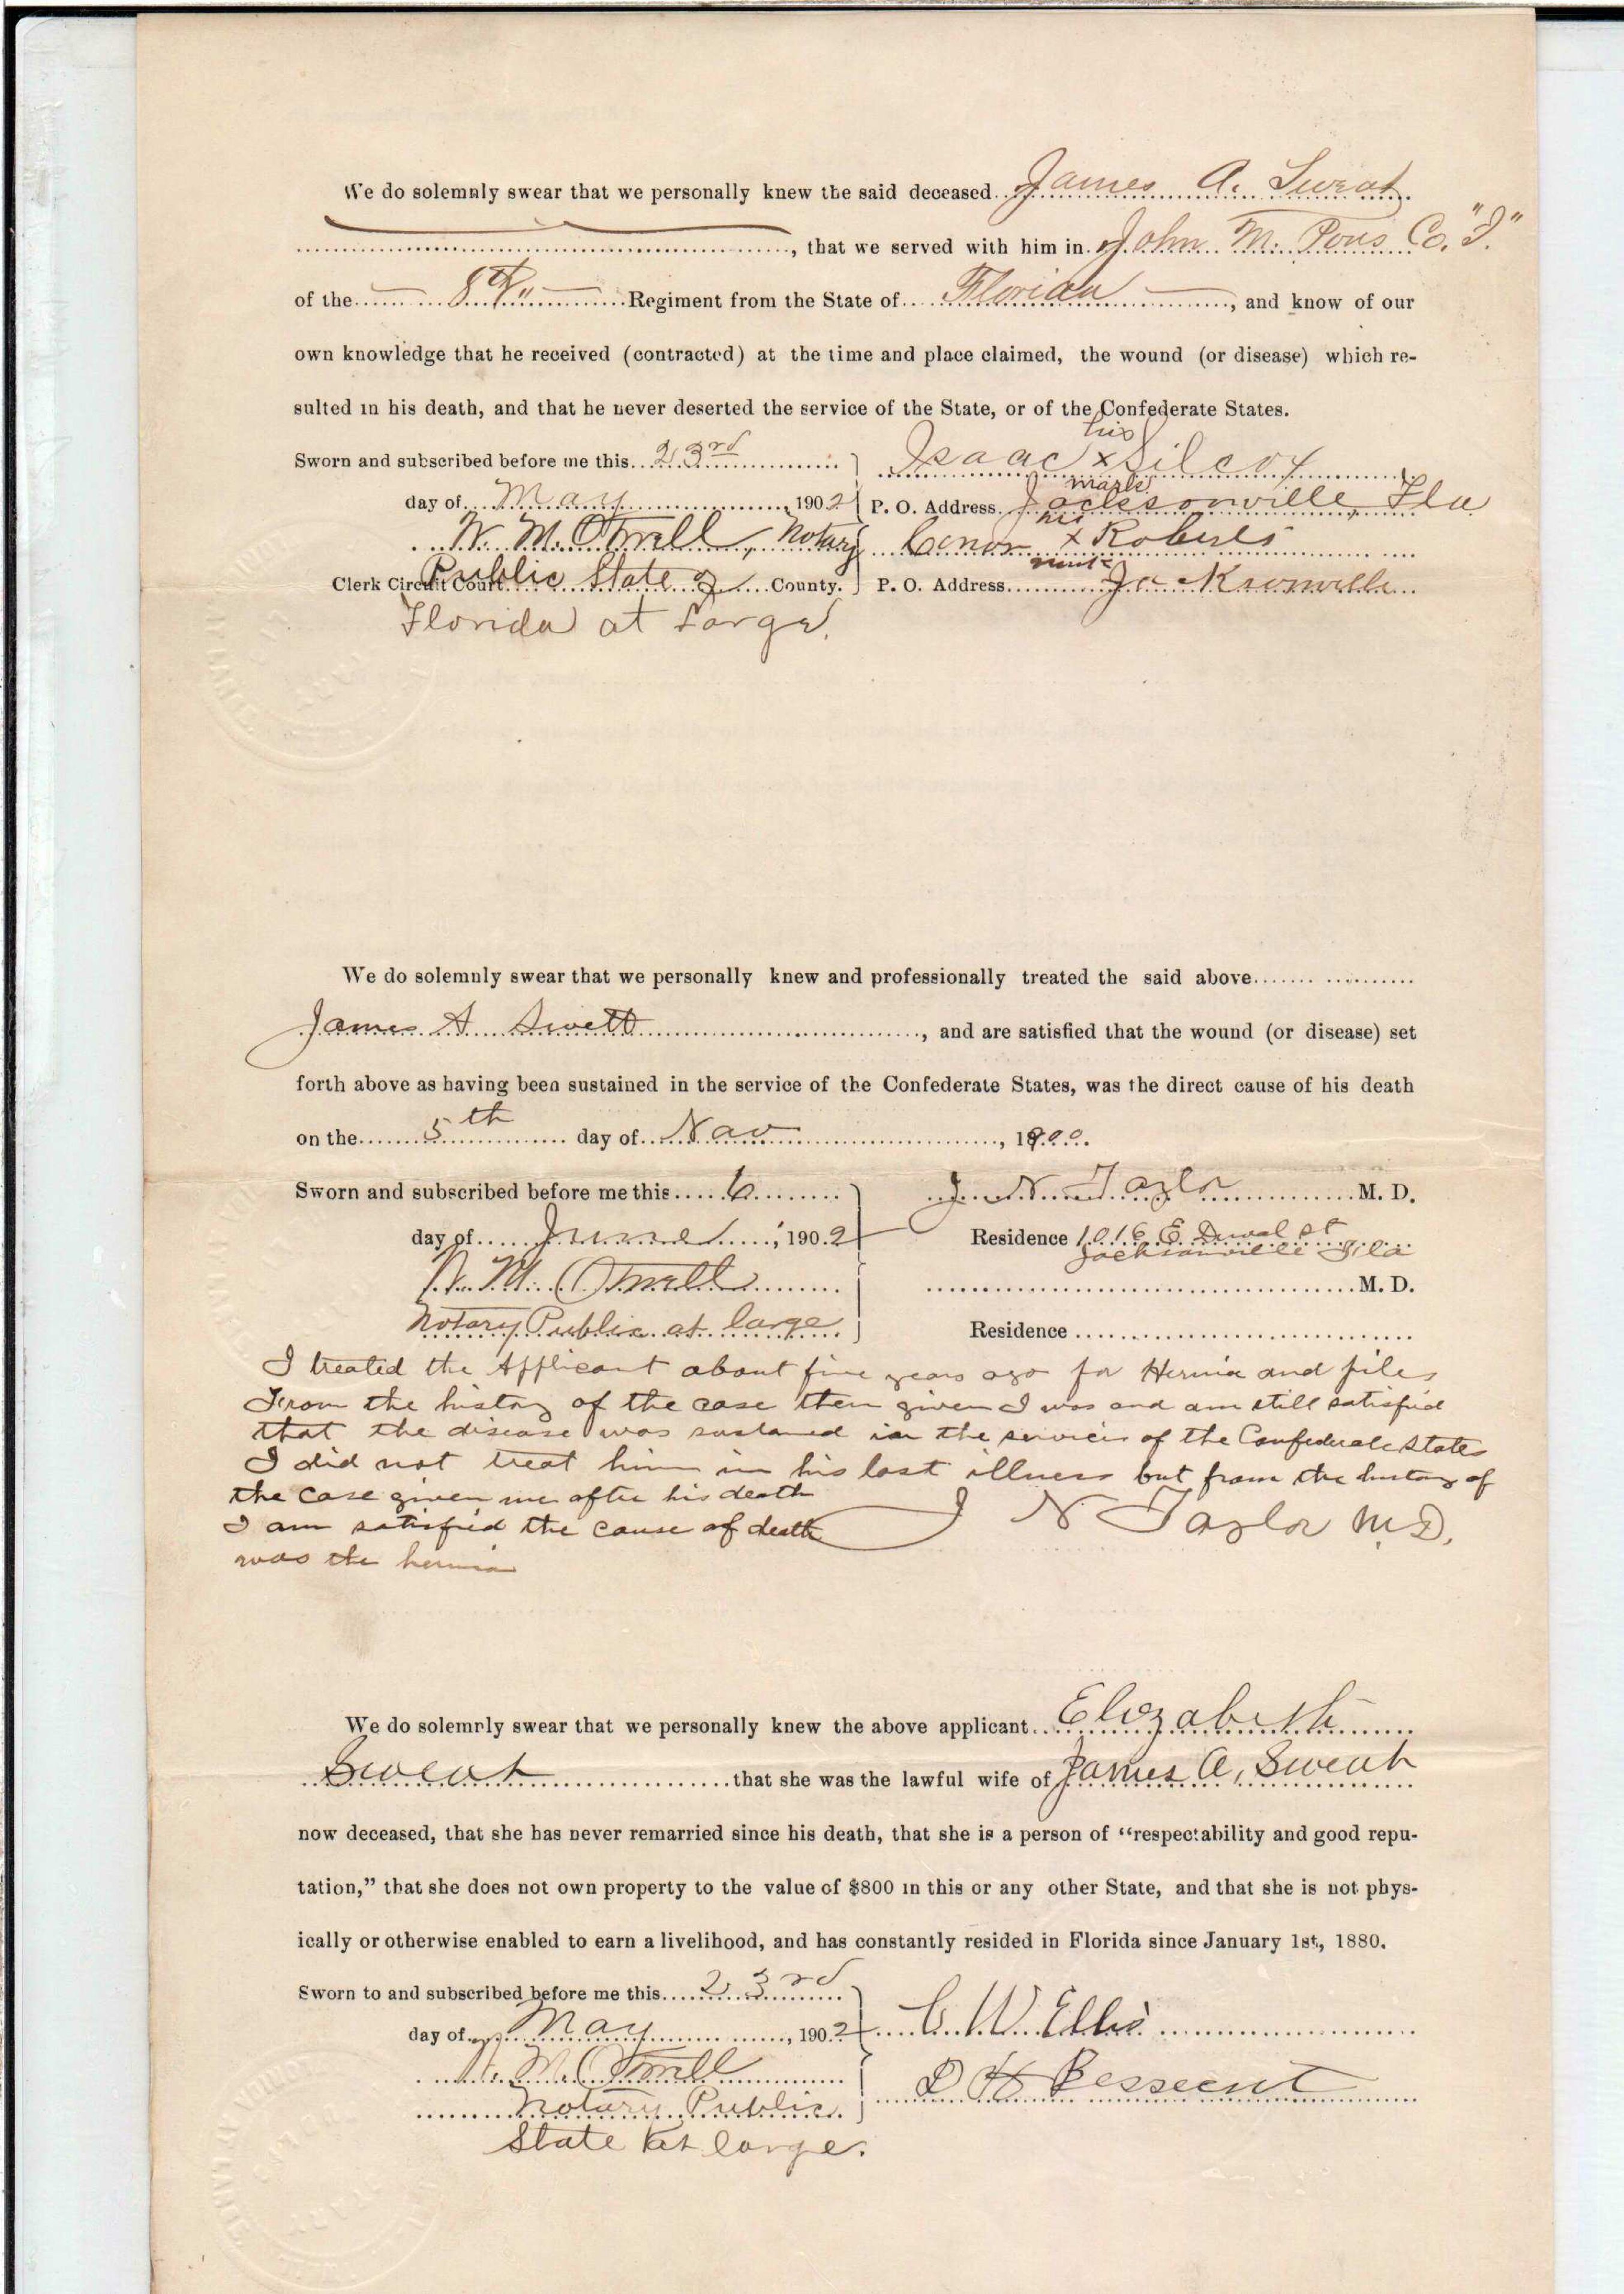 We do solemnly swear that we personally knew the said deceased James A. Sweat
, that we served with him in John M. Pons Co. "I."
of the 8th Regiment from the State of Florida, and know of our
own knowledge that he received (contracted) at the time and place claimed, the wound (or disease) which re-
sulted in his death, and that he never deserted the service of the State, or of the Confederate States.
his
Sworn and subscribed before me this 23rd Isaac x Silcox
mark
day of May, 1902 P. O. Address Jacksonville, Fla
his
W. M. Otwell, Notary x Roberts
mark
Clerk Circuit Court Public State of County. P. O. Address Jacksonville
Florida at Large.
We do solemnly swear that we personally knew and professionally treated the said above
James A Swett, and are satisfied that the wound (or disease) set
forth above as having been sustained in the service of the Confederate States, was the direct cause of his death
on the 5th day of Nov, 1900.
Sworn and subscribed before me this 6 J. N. Taylor M. D.
day of June, 1902 Residence 1016 E Duval St
Jacksonville Fla
W. M. Otwell M. D.
Notary Public at large Residence
I treated the Applicant about five years ago for Hernia and piles
From the history of the case then given I was and am still satisfied
that the disease was sustained in the services of the Confederate States
I did not treat him in his last illness but from the history of
the case given me after his death
I am satisfied the cause of death J N Taylor M.D.
was the hernia
We do solemnly swear that we personally knew the above applicant Elizabeth
Sweat that she was the lawful wife of James A. Sweat
now deceased, that she has never remarried since his death, that she is a person of "respectability and good repu-
tation," that she does not own property to the value of $800 in this or any other State, and that she is not phys-
ically or otherwise enabled to earn a livelihood, and has constantly resided in Florida since January 1st, 1880.
Sworn to and subscribed before me this 23rd
day of May, 1902 C. W. Ellis
W. M. Otwell
D H Bessent
Notary Public
State at large.